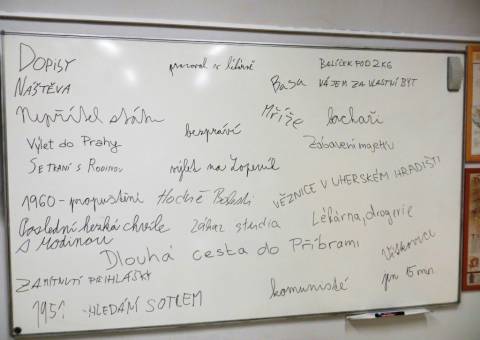 Dopisy
pracoval v lékárně
Balíček pod 2 kg
Návštěva
Basa
Nájem za vlastní byt
Nepřítel státu
Mříže
bachaři
Výlet do Prahy
bezpráví
Zabavení majetku
Setkání s rodinou
výlet na
1960 - propuštění
Hodně Bolesti
Věznice v Uherském Hradišti
Poslední hezká chvíle
s rodinou
zákaz studia
Lékárna, drogerie
Dlouhá cesta do Příbrami
Zamítnutí přihlášky
komunisté
jen 5 min
1951 - hledání